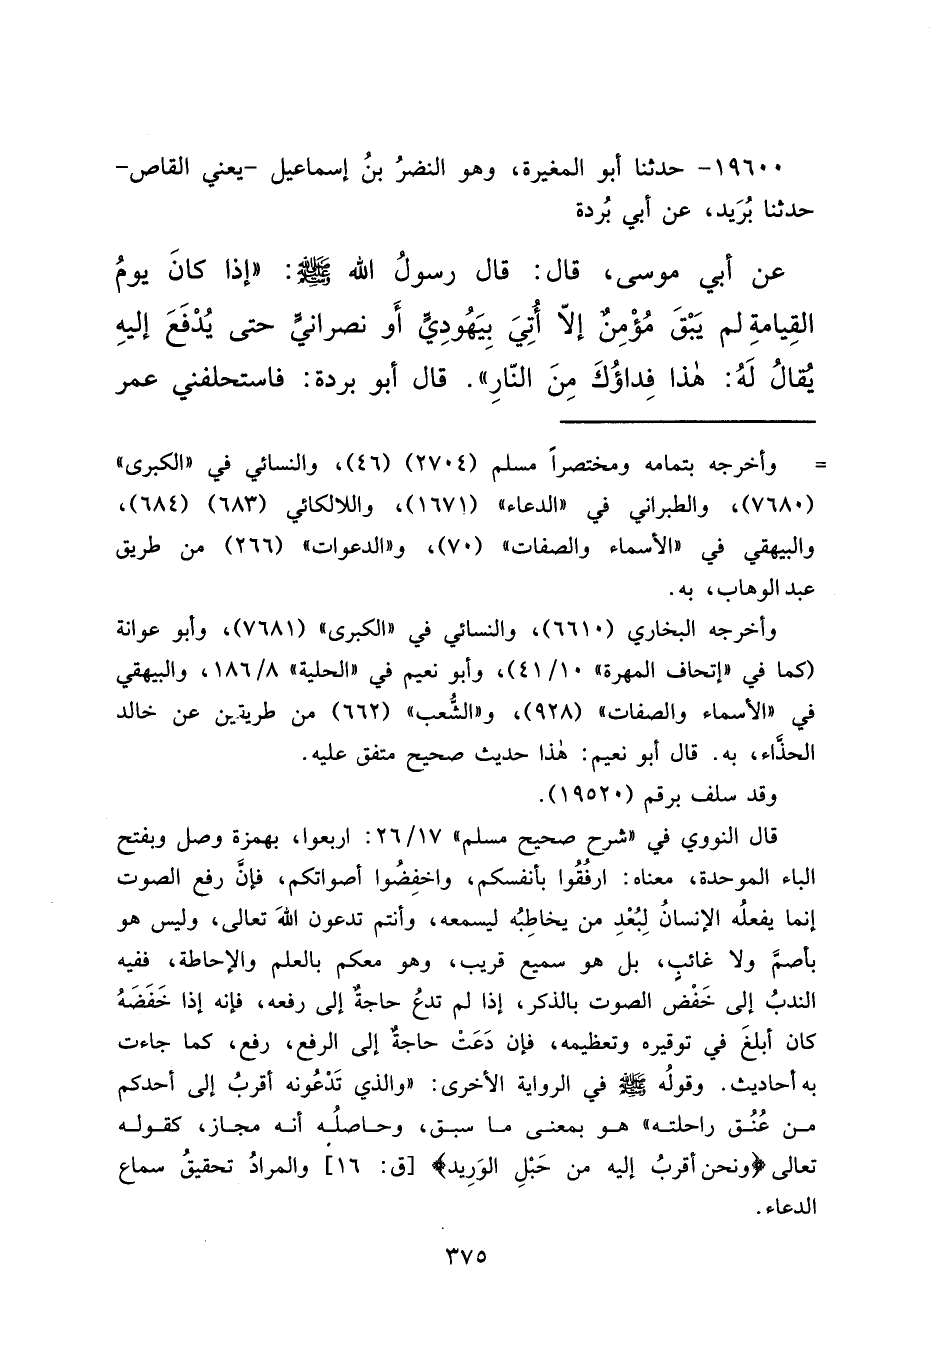 ١٩٦٠٠- حدثنا أبو المغيرة، وهو النضرُ بنُ إسماعيل -يعني القاص-
حدثنا بُرَيد، عن أبي بُردة
عن أبي موسى، قال: قال رسولُ الله ﷺ: «إذا كانَ يومُ
القِيامةِ لم يَبْقَ مُؤْمِنٌ إلاّ أُتِيَ بِيَهُودِيٍّ أَو نصرانيٍّ حتى يُدْفَعَ إليهِ
يُقالُ لَهُ: هٰذا فِداؤُكَ مِنَ النّارِ». قال أبو بردة: فاستحلفني عمر
= وأخرجه بتمامه ومختصراً مسلم (٢٧٠٤) (٤٦)، والنسائي في «الكبرى»
(٧٦٨٠)، والطبراني في «الدعاء» (١٦٧١)، واللالكائي (٦٨٣) (٦٨٤)،
والبيهقي في «الأسماء والصفات» (٧٠)، و«الدعوات» (٢٦٦) من طريق
عبد الوهاب، به.
وأخرجه البخاري (٦٦١٠)، والنسائي في «الكبرى» (٧٦٨١)، وأبو عوانة
(كما في «إتحاف المهرة» ٤١/١٠)، وأبو نعيم في «الحلية» ١٨٦/٨، والبيهقي
في «الأسماء والصفات» (٩٢٨)، و«الشُّعب» (٦٦٢) من طريقين عن خالد
الحذَّاء، به. قال أبو نعيم: هٰذا حديث صحيح متفق عليه.
وقد سلف برقم (١٩٥٢٠).
قال النووي في «شرح صحيح مسلم» ٢٦/١٧: اربعوا، بهمزة وصل وبفتح
الباء الموحدة، معناه: ارفُقُوا بأنفسكم، واخفِضُوا أصواتكم، فإنَّ رفع الصوت
إنما يفعلُه الإنسانُ لِبُعْدِ من يخاطِبُه ليسمعه، وأنتم تدعون اللهَ تعالى، وليس هو
بأصمَّ ولا غائبٍ، بل هو سميع قريب، وهو معكم بالعلم والإحاطة، ففيه
الندبُ إلى خَفْض الصوت بالذكر، إذا لم تدعُ حاجةٌ إلى رفعه، فإنه إذا خَفَضَهُ
كان أبلغَ في توقيره وتعظيمه، فإن دَعَتْ حاجةٌ إلى الرفع، رفع، كما جاءت
به أحاديث. وقولُه ﷺ في الرواية الأخرى: «والذي تَدْعُونه أقربُ إلى أحدكم
من عُنُق راحلته» هو بمعنى ما سبق، وحاصلُه أنه مجاز، كقوله
تعالى ﴿ونحن أقربُ إليه من حَبْلِ الوَرِيد﴾ [ق: ١٦] والمرادُ تحقيقُ سماع
الدعاء.
٣٧٥